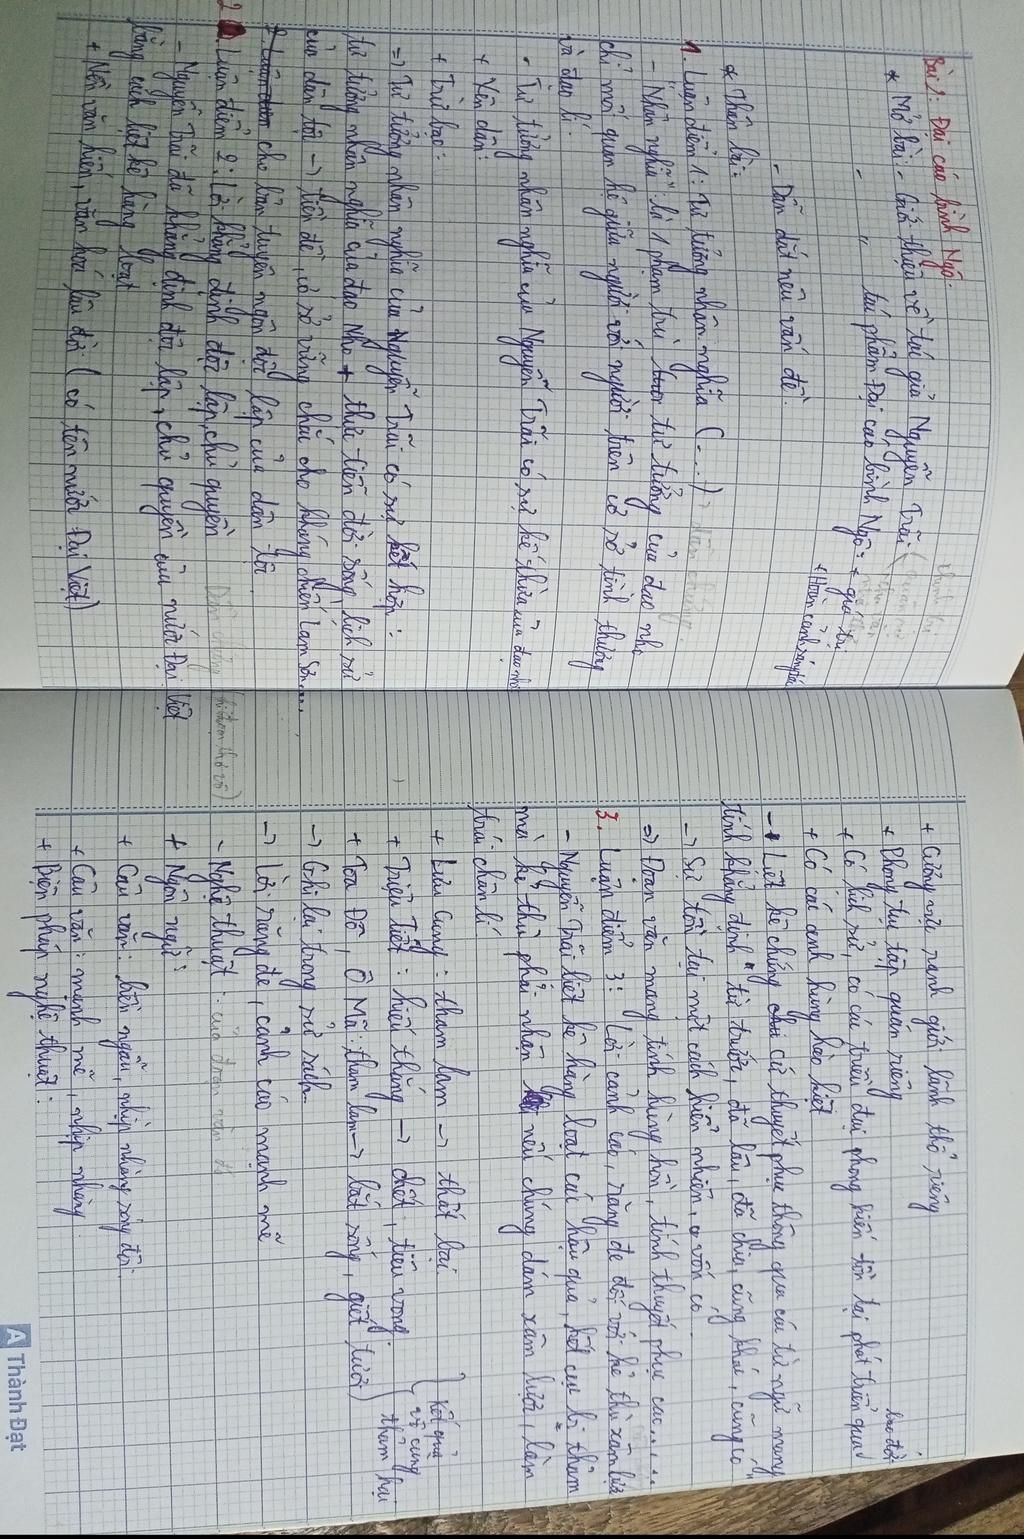 Bài 2: Đại cáo bình Ngô.
* Mở bài: - Giới thiệu về tác giả Nguyễn Trãi
- " tác phẩm Đại cáo bình Ngô: + giá trị
+ Hoàn cảnh sáng tác
- Dẫn dắt nêu vấn đề.
* Thân bài:
1. Luận điểm 1: Tư tưởng nhân nghĩa (....) → Dẫn chứng.
- "Nhân nghĩa": là 1 phạm trù tư tưởng của đạo nho
chỉ mối quan hệ giữa người với người trên cơ sở tình thương
và đạo lí.
- Tư tưởng nhân nghĩa của Nguyễn Trãi có sự kế thừa của đạo nho
+ Yên dân:
+ Trừ bạo:
=> Tư tưởng nhân nghĩa của Nguyễn Trãi có sự kết hợp:
tư tưởng nhân nghĩa của đạo Nho + thực tiễn đời sống lịch sử
của dân tộc → tiền đề, cơ sở vững chắc cho kháng chiến Lam Sơn...,
cho bản tuyên ngôn độc lập của dân tộc
2. Luận điểm 2: Lời khẳng định độc lập, chủ quyền Dẫn chứng (trích đoạn thơ vô)
- Nguyễn Trãi đã khẳng định độc lập, chủ quyền của nước Đại Việt
bằng cách liệt kê hàng loạt
+ Nền văn hiến, văn hoá lâu đời (có tên nước Đại Việt)
+ Cương vực ranh giới lãnh thổ riêng
+ Phong tục tập quán riêng
+ Có lịch sử, có các triều đại phong kiến tồn tại phát triển qua bao đời
+ Có các anh hùng hào kiệt
- Liệt kê chứng cứ thuyết phục thông qua các từ ngữ mang
tính khẳng định "từ trước, đã lâu, đã chia, cũng khác, cũng có"
→ Sự tồn tại một cách hiển nhiên, vốn có.
=> Đoạn văn mang tính hùng hồn, tính thuyết phục cao.....
3. Luận điểm 3: Lời cảnh cáo, răng đe đối với kẻ thù xâm lược
- Nguyễn Trãi liệt kê hàng loạt các hậu quả, kết cục bi thảm
mà kẻ thù phải nhận nếu chúng dám xâm lược, làm
trái chân lí
+ Lưu Cung: tham lam → thất bại
+ Triệu Tiết: hiếu thắng → chết, tiêu vong
+ Toa Đô, Ô Mã: tham lam → bắt sống, giết tươi
} kết quả vô cùng thảm hại
→ Ghi lại trong sử sách.
→ Lời răng đe, cảnh cáo mạnh mẽ
- Nghệ thuật: của đoạn văn
+ Ngôn ngữ:
+ Câu văn: biền ngẫu, nhịp nhàng sóng đôi
+ Câu văn: mạnh mẽ, nhịp nhàng
+ Biện pháp nghệ thuật:
A Thành Đạt